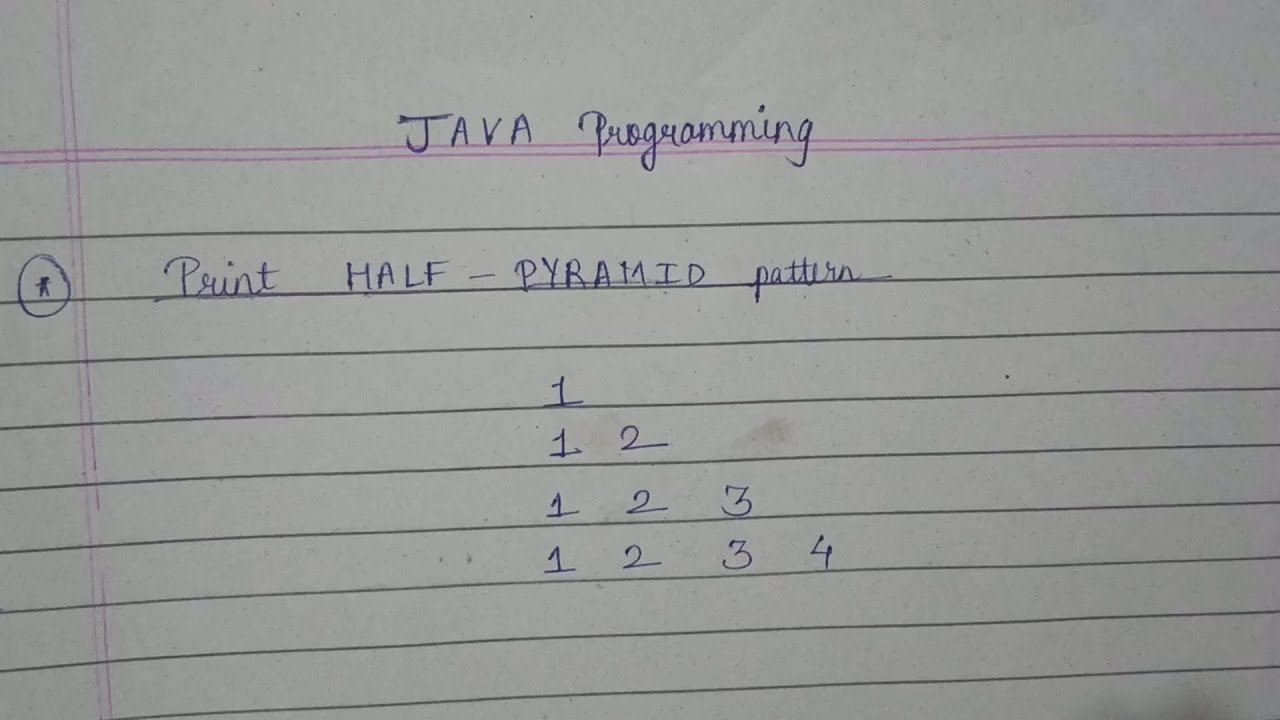 JAVA Programming
* Print HALF - PYRAMID pattern
1
1 2
1 2 3
1 2 3 4